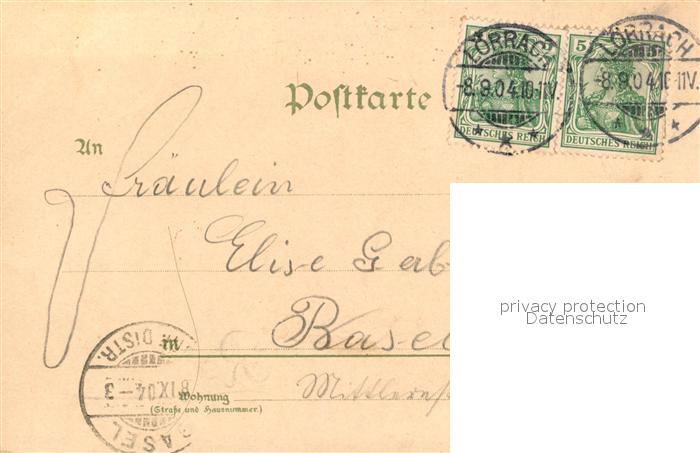 LÖRRACH
-8.9.04.10-11V.
5
DEUTSCHES REICH
LÖRRACH
-8.9.04.10-11V.
DEUTSCHES REICH
Postkarte
An
Fräulein
Elise
Basel
in
BASEL
DISTR.
8 IX 04-3
Wohnung
(Straße und Hausnummer.)
privacy protection
Datenschutz